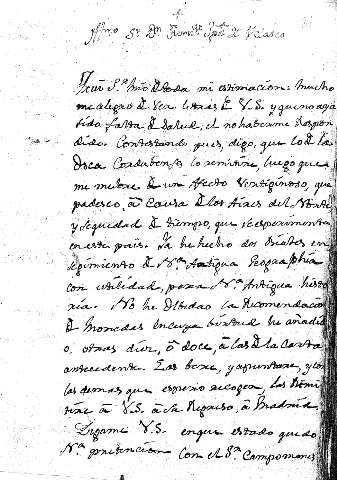 +
Illmo Sr Dn Fernando Jph de Velasco
Mui Sr Mio de toda mi estimacion: mucho
me alegro de ver letras de V.S. y que no aya
sido falta de salud, el no haberme respon
dido. Contestando pues, digo, que lo de la
Doca Cordubense lo remitire, luego que
me mejore de un afecto vertiginoso, que
padesco, à causa de los Aires del Norte
y sequedad de tiempo, que se esperimenta
en este pais. Ya he hecho dos viales en
seguimiento de Nra Antigua Geographia
con utilidad, para Nra Antigua histo
ria. No he olbidado la Recomendacio
de Monedas en cuya birtud he añadi
do otras diez, ò doce, à las de la Carta
antecedente. Las bere, y apuntare, y con
las demas que espero recoger, las Remi
tire à V.S. à su Regreso, à Madrid.
Digame V.S. en que estado quedo
Nra pretencion con el Sr Campomanes